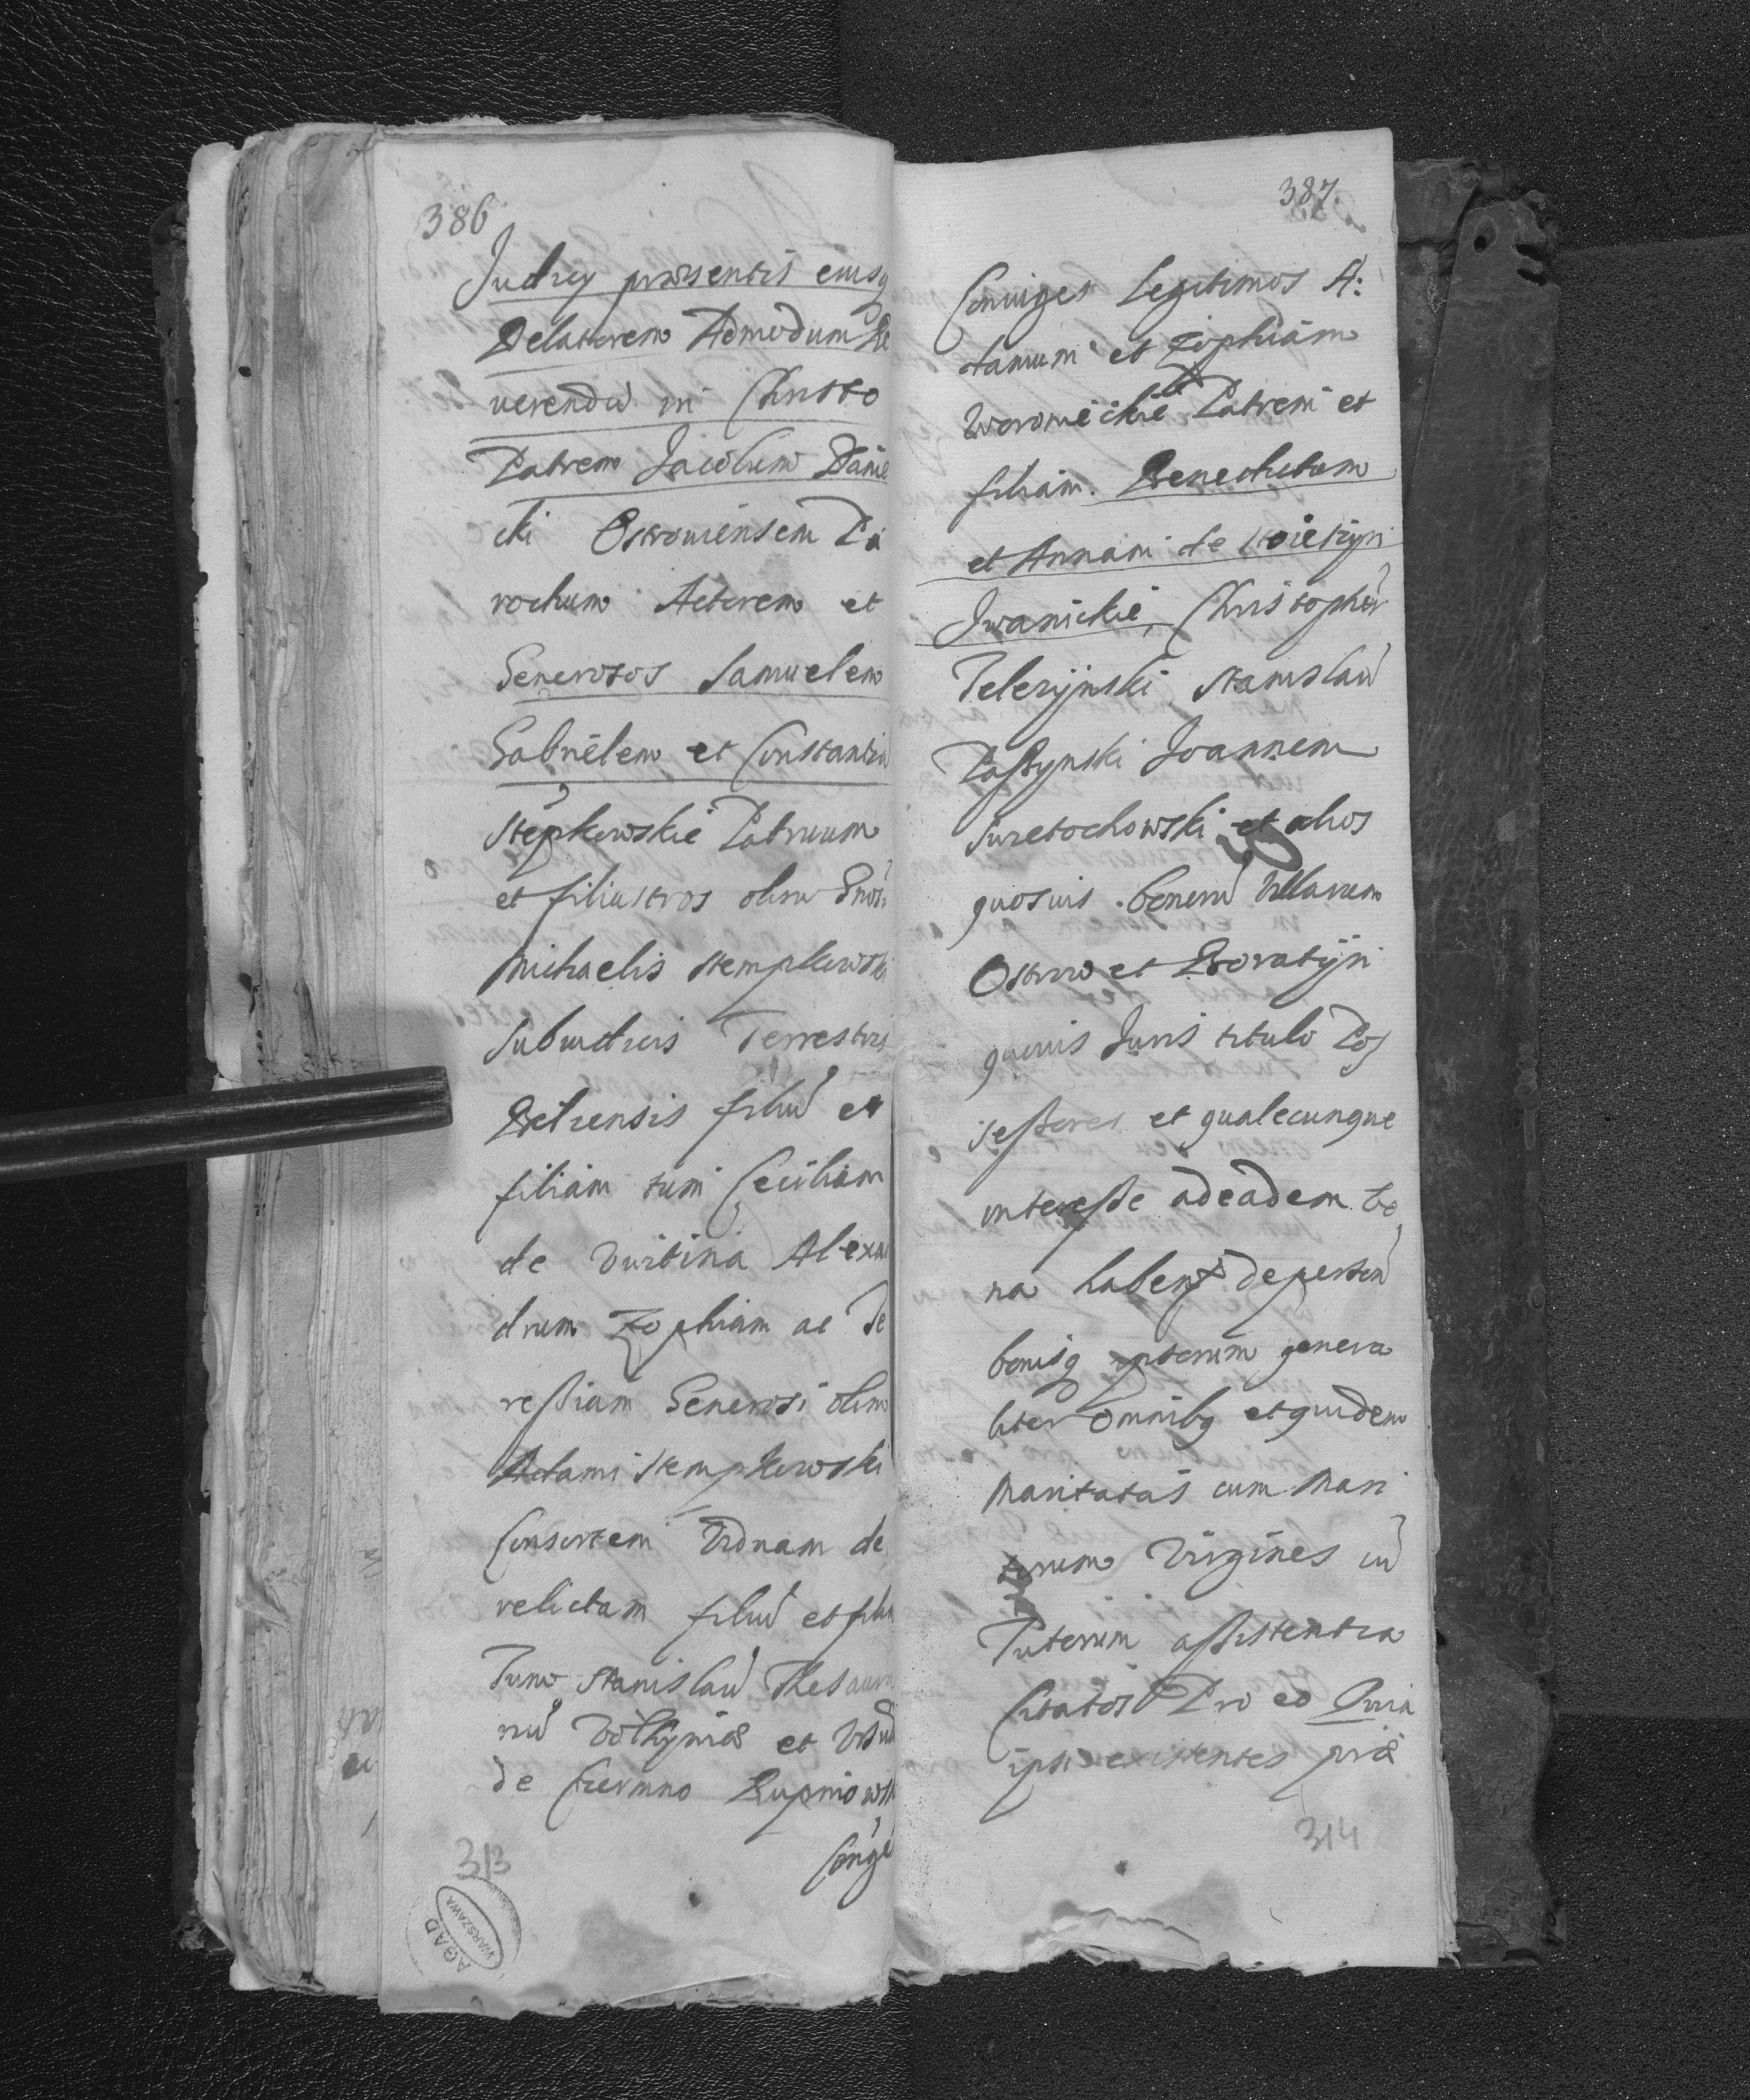 386
Judicij praesentis eiusq
Delatorem Admodum Re
uerendu in Christo
Patrem Jacobum Danie
cki Ostrouiensem Pa
rochum Actorem et
Generosos Samuelem
Gabrielem et Constantin
Stępkowskie Patruum
et filiastros olim Gnosi
Michaelis Stempkowski
Subiudicis Terrestris
Belzensis filiu et
filiam tum Ceciliam
de Vurtina Alexan
drum Zophiam ac Te
ressiam Generosi olim
Adami Stempkowski
Consortem Viduam de
relictam filiu et filia
Tum Stanislau Thesaura
riu Volhyniae et Vrsul
de Czermno Lupniowsk
Coniuge
313
AGAD
WARSZAWA
387.
Coniuges Legitimos A:
damum et Zophiam
Woronieckie Patrem et
filiam. Benedictum
et Annam de
Iwanickie, Christopher
Telezynski Stanislau
Pastynski Joannem
Suretochowski et alios
quosuis bonoru Villarum
Ostrow et Boratyn
quouis Juris titulo Pos
sessores et qualecunque
interesse ad eadem bo
na habent de personis
bonisq ipsorum genera
liter omnibq et quidem
Maritatas cum Mari
torum Virgines cu
Tutorum assistentia
Citatos Pro eo Quia
ipsi existentes prae
314